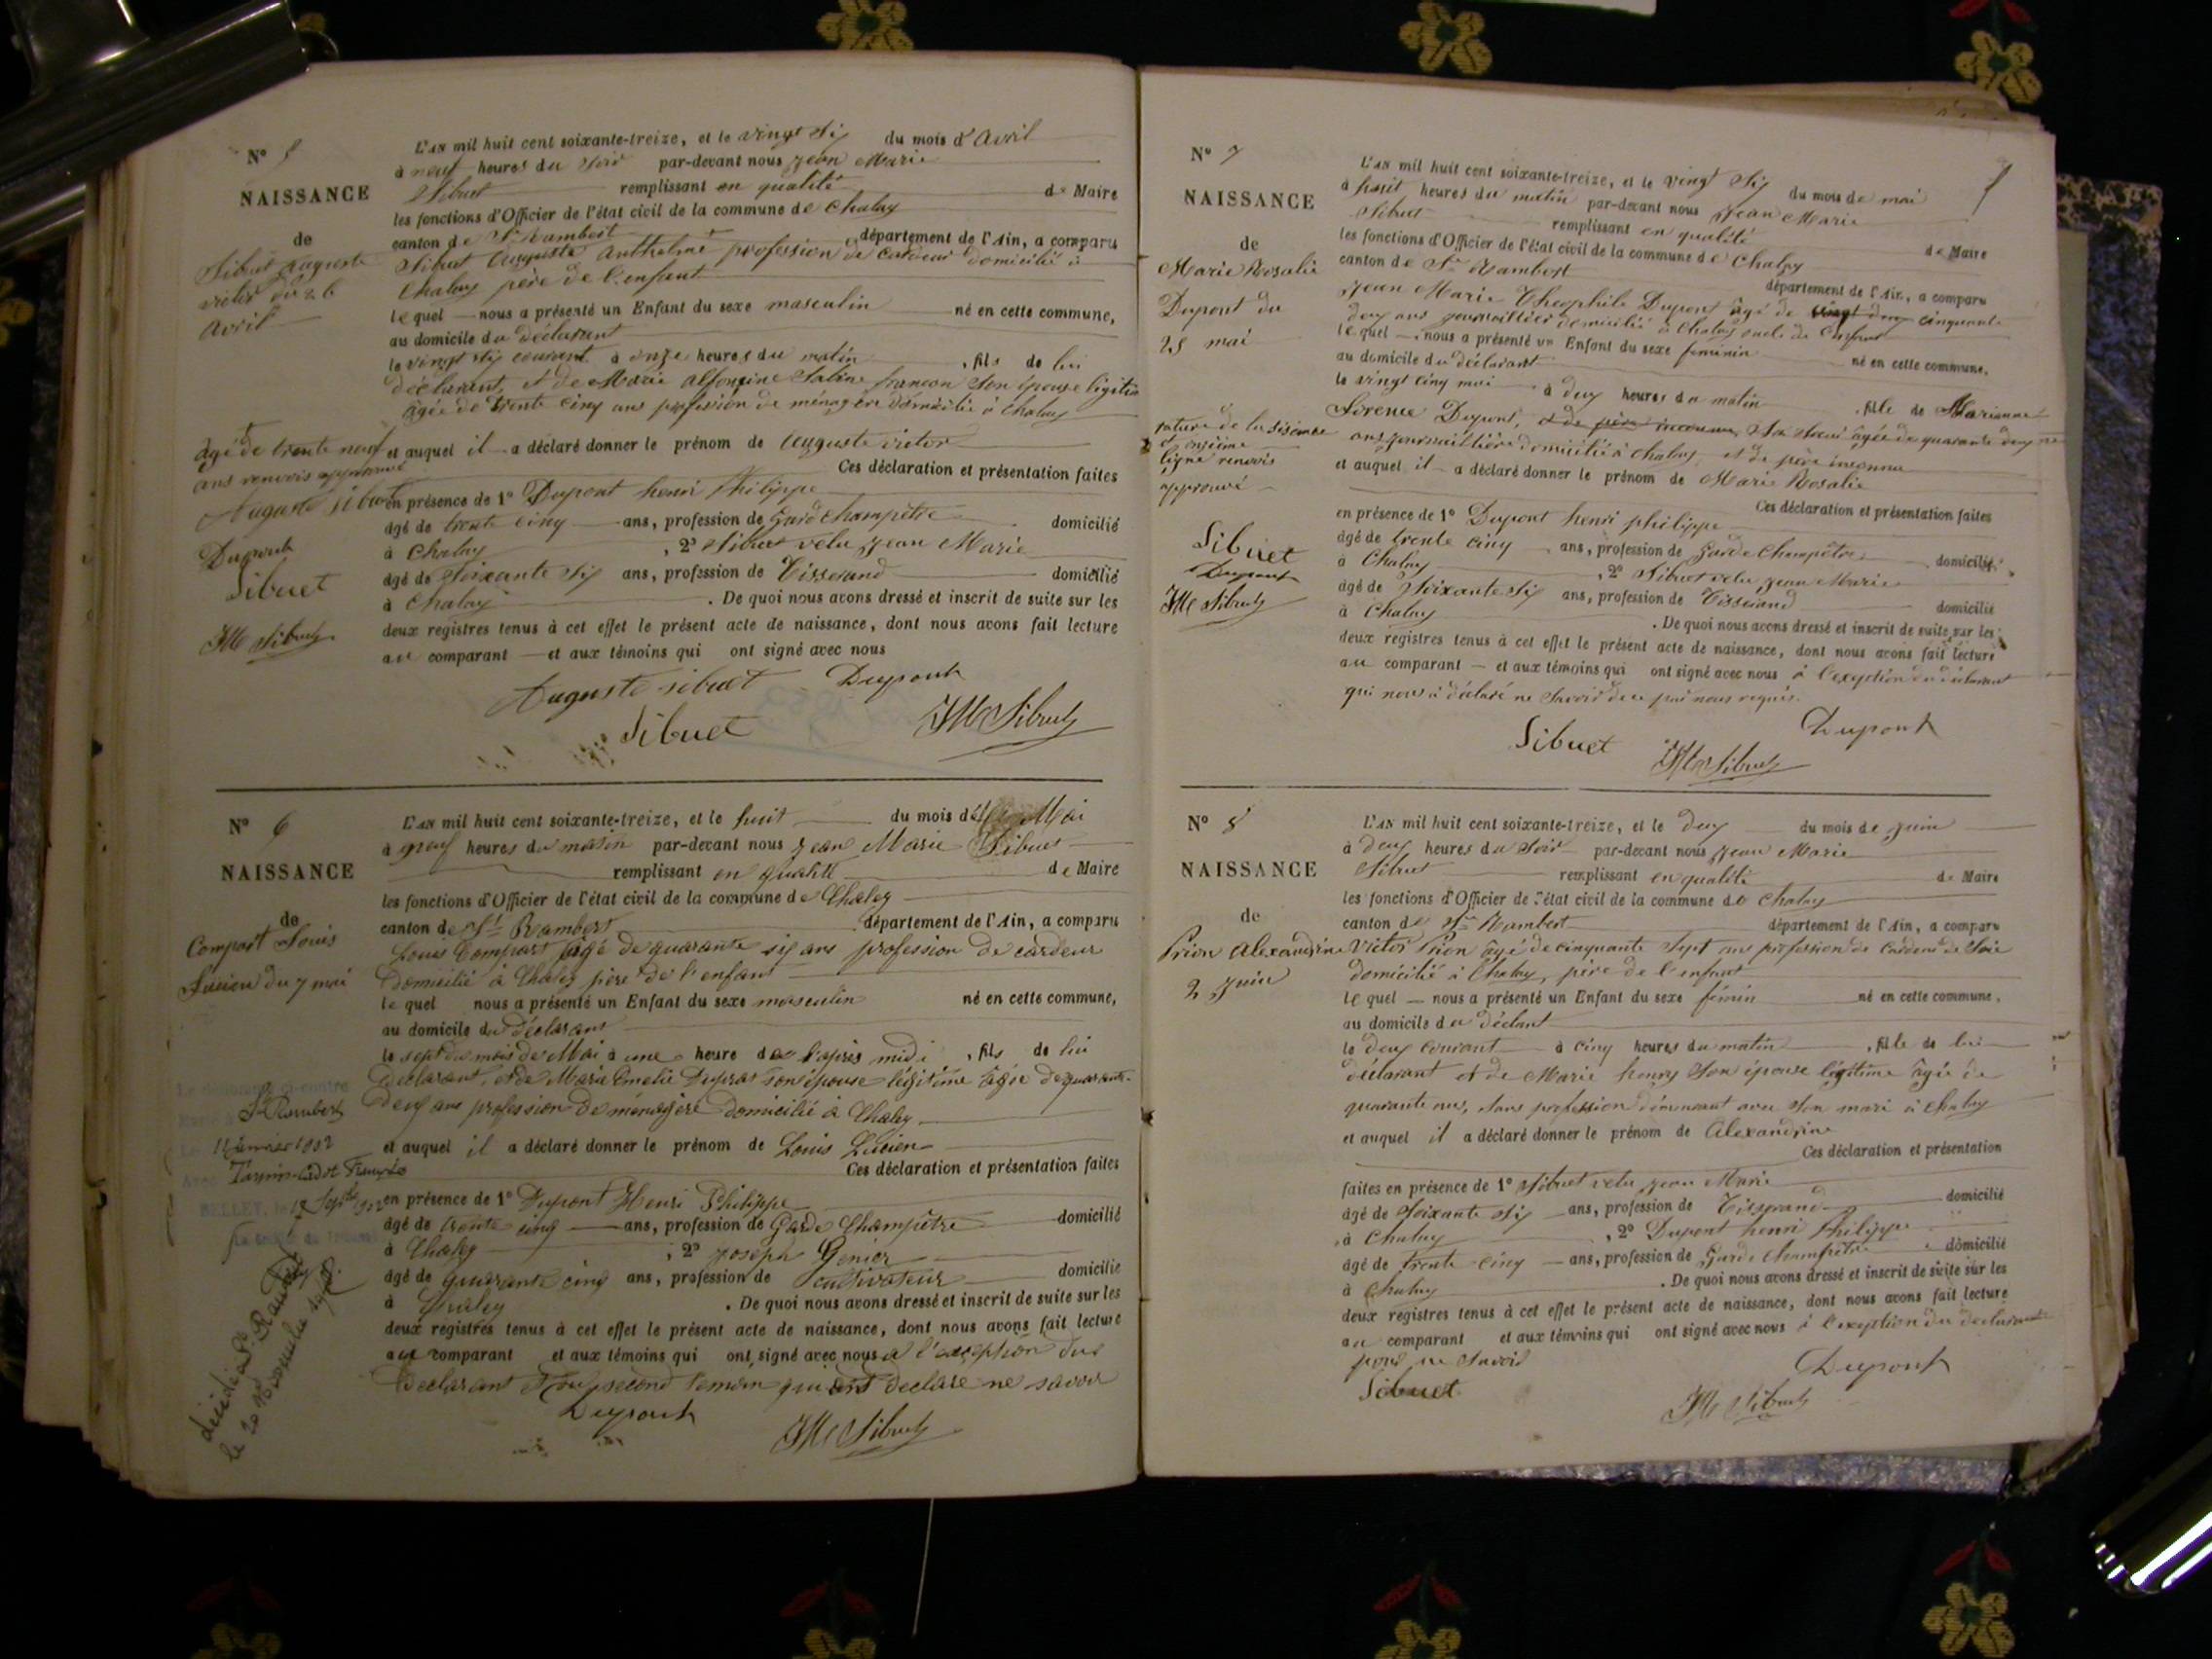 N° 5
NAISSANCE
de
Sibuet Auguste
victor du 26
Avril
L'AN mil huit cent soixante-treize, et le vingt six du mois d'Avril
à neuf heures du soir par-devant nous Jean Marie
Sibuet remplissant en qualité de Maire
les fonctions d'Officier de l'état civil de la commune de Chaley
canton de St Rambert département de l'Ain, a comparu
Sibuet Auguste Anthelme profession de cardeur domicilié à
Chaley père de l'enfant
lequel nous a présenté un Enfant du sexe masculin né en cette commune,
au domicile du déclarant
le vingt six courant à onze heures du matin, fils de lui
déclarant, et de Marie Alfonsine Sabine françon son épouse légitim
âgée de trente cinq ans profession de ménagère domicilié à Chaley
agé de trente neuf
ans renvois approuvé
Auguste sibuet
Dupont
Sibuet
JM Sibuet
et auquel il a déclaré donner le prénom de Auguste victor
Ces déclaration et présentation faites
en présence de 1° Dupont henri Philippe
âgé de trente cinq ans, profession de Garde champêtre domicilié
à Chaley, 2° Sibuet velu Jean Marie
âgé de soixante six ans, profession de Tisserand domicilié
à Chaley. De quoi nous avons dressé et inscrit de suite sur les
deux registres tenus à cet effet le présent acte de naissance, dont nous avons fait lecture
au comparant et aux témoins qui ont signé avec nous
Auguste sibuet Dupont
Sibuet JM Sibuet
N° 6
NAISSANCE
de
Compart Louis
Lucien du 7 mai
L'AN mil huit cent soixante-treize, et le huit du mois de Mai
à neuf heures du matin par-devant nous Jean Marie Sibuet
remplissant en qualité de Maire
les fonctions d'Officier de l'état civil de la commune de Chaley
canton de St Rambert département de l'Ain, a comparu
Louis Compart âgé de quarante six ans profession de cardeur
domicilié à Chaley père de l'enfant
lequel nous a présenté un Enfant du sexe masculin né en cette commune,
au domicile du déclarant
le sept du mois de Mai à une heure de l'après midi, fils de lui
déclarant, et de Marie Emelie Dupras son épouse légitime âgée de quarante
deux ans profession de ménagère domicilié à Chaley
St Rambert
BELLEY, le 12 Septbre 1902
décédé à St Rambert
et auquel il a déclaré donner le prénom de Louis Lucien
Ces déclaration et présentation faites
en présence de 1° Dupont Henri Philippe
âgé de trente cinq ans, profession de Garde Champêtre domicilié
à Chaley, 2° Joseph Genier
âgé de quarante cinq ans, profession de cultivateur domicilié
à Chaley. De quoi nous avons dressé et inscrit de suite sur les
deux registres tenus à cet effet le présent acte de naissance, dont nous avons fait lecture
aux comparant et aux témoins qui ont signé avec nous à l'exception du
déclarant et du second témoin qui ont declaré ne savoir
Dupont
JM Sibuet
7
N° 7
NAISSANCE
de
Marie Rosalie
Dupont du
25 mai
L'AN mil huit cent soixante-treize, et le vingt six du mois de mai
à huit heures du matin par-devant nous Jean Marie
Sibuet remplissant en qualité de Maire
les fonctions d'Officier de l'état civil de la commune de Chaley
canton de St Rambert département de l'Ain, a comparu
Jean Marie Theophile Dupont âgé de vingt deux cinquante
deux ans journaillier domicilié à Chaley oncle de l'enfant
lequel nous a présenté un Enfant du sexe feminin né en cette commune,
au domicile du déclarant
le vingt cinq mai à deux heures du matin, fille de Marianne
Florence Dupont, et de père inconnu, sa soeur âgée de quarante deux
ans journaillière domiciliée à Chaley et de père inconnu
rature de la sixième
et onzième
ligne renvois
approuvé
Sibuet
Dupont
JM Sibuet
et auquel il a déclaré donner le prénom de Marie Rosalie
Ces déclaration et présentation faites
en présence de 1° Dupont henri philippe
âgé de trente cinq ans, profession de Garde Champêtre domicilié
à Chaley, 2° Sibuet velu Jean Marie
âgé de Soixante Six ans, profession de Tisserand domicilié
à Chaley. De quoi nous avons dressé et inscrit de suite sur les
deux registres tenus à cet effet le présent acte de naissance, dont nous avons fait lecture
au comparant et aux témoins qui ont signé avec nous à l'exeption du déclarant
qui nous a déclaré ne savoir de ce par nous requis.
Sibuet Dupont
JM Sibuet
N° 8
NAISSANCE
de
Prion Alexandrine
2 Juin
L'AN mil huit cent soixante-treize, et le deux du mois de Juin
à deux heures du Soir par-devant nous Jean Marie
Sibuet remplissant en qualité de Maire
les fonctions d'Officier de l'état civil de la commune de Chaley
canton de St Rambert département de l'Ain, a comparu
Victor Prion âgé de cinquante sept ans profession de Cardeur de Soie
domicilié à Chaley, père de l'enfant
lequel nous a présenté un Enfant du sexe féminin né en cette commune,
au domicile du déclant
le deux courant à cinq heures du matin, fille de lui
déclarant et de Marie henry son épouse légitime âgée de
quarante ans, sans profession démeurant avec son mari à Chaley
et auquel il a déclaré donner le prénom de Alexandrine
Ces déclaration et présentation
faites en présence de 1° Sibuet velu Jean Marie
âgé de Soixante Six ans, profession de Tisserand domicilié
à Chaley, 2° Dupont henri Philippe
âgé de trente cinq ans, profession de Garde Champêtre domicilié
à Chaley. De quoi nous avons dressé et inscrit de suite sur les
deux registres tenus à cet effet le présent acte de naissance, dont nous avons fait lecture
au comparant et aux témoins qui ont signé avec nous à l'exeption du declarant
pour ne savoir
Sibuet Dupont
JM Sibuet